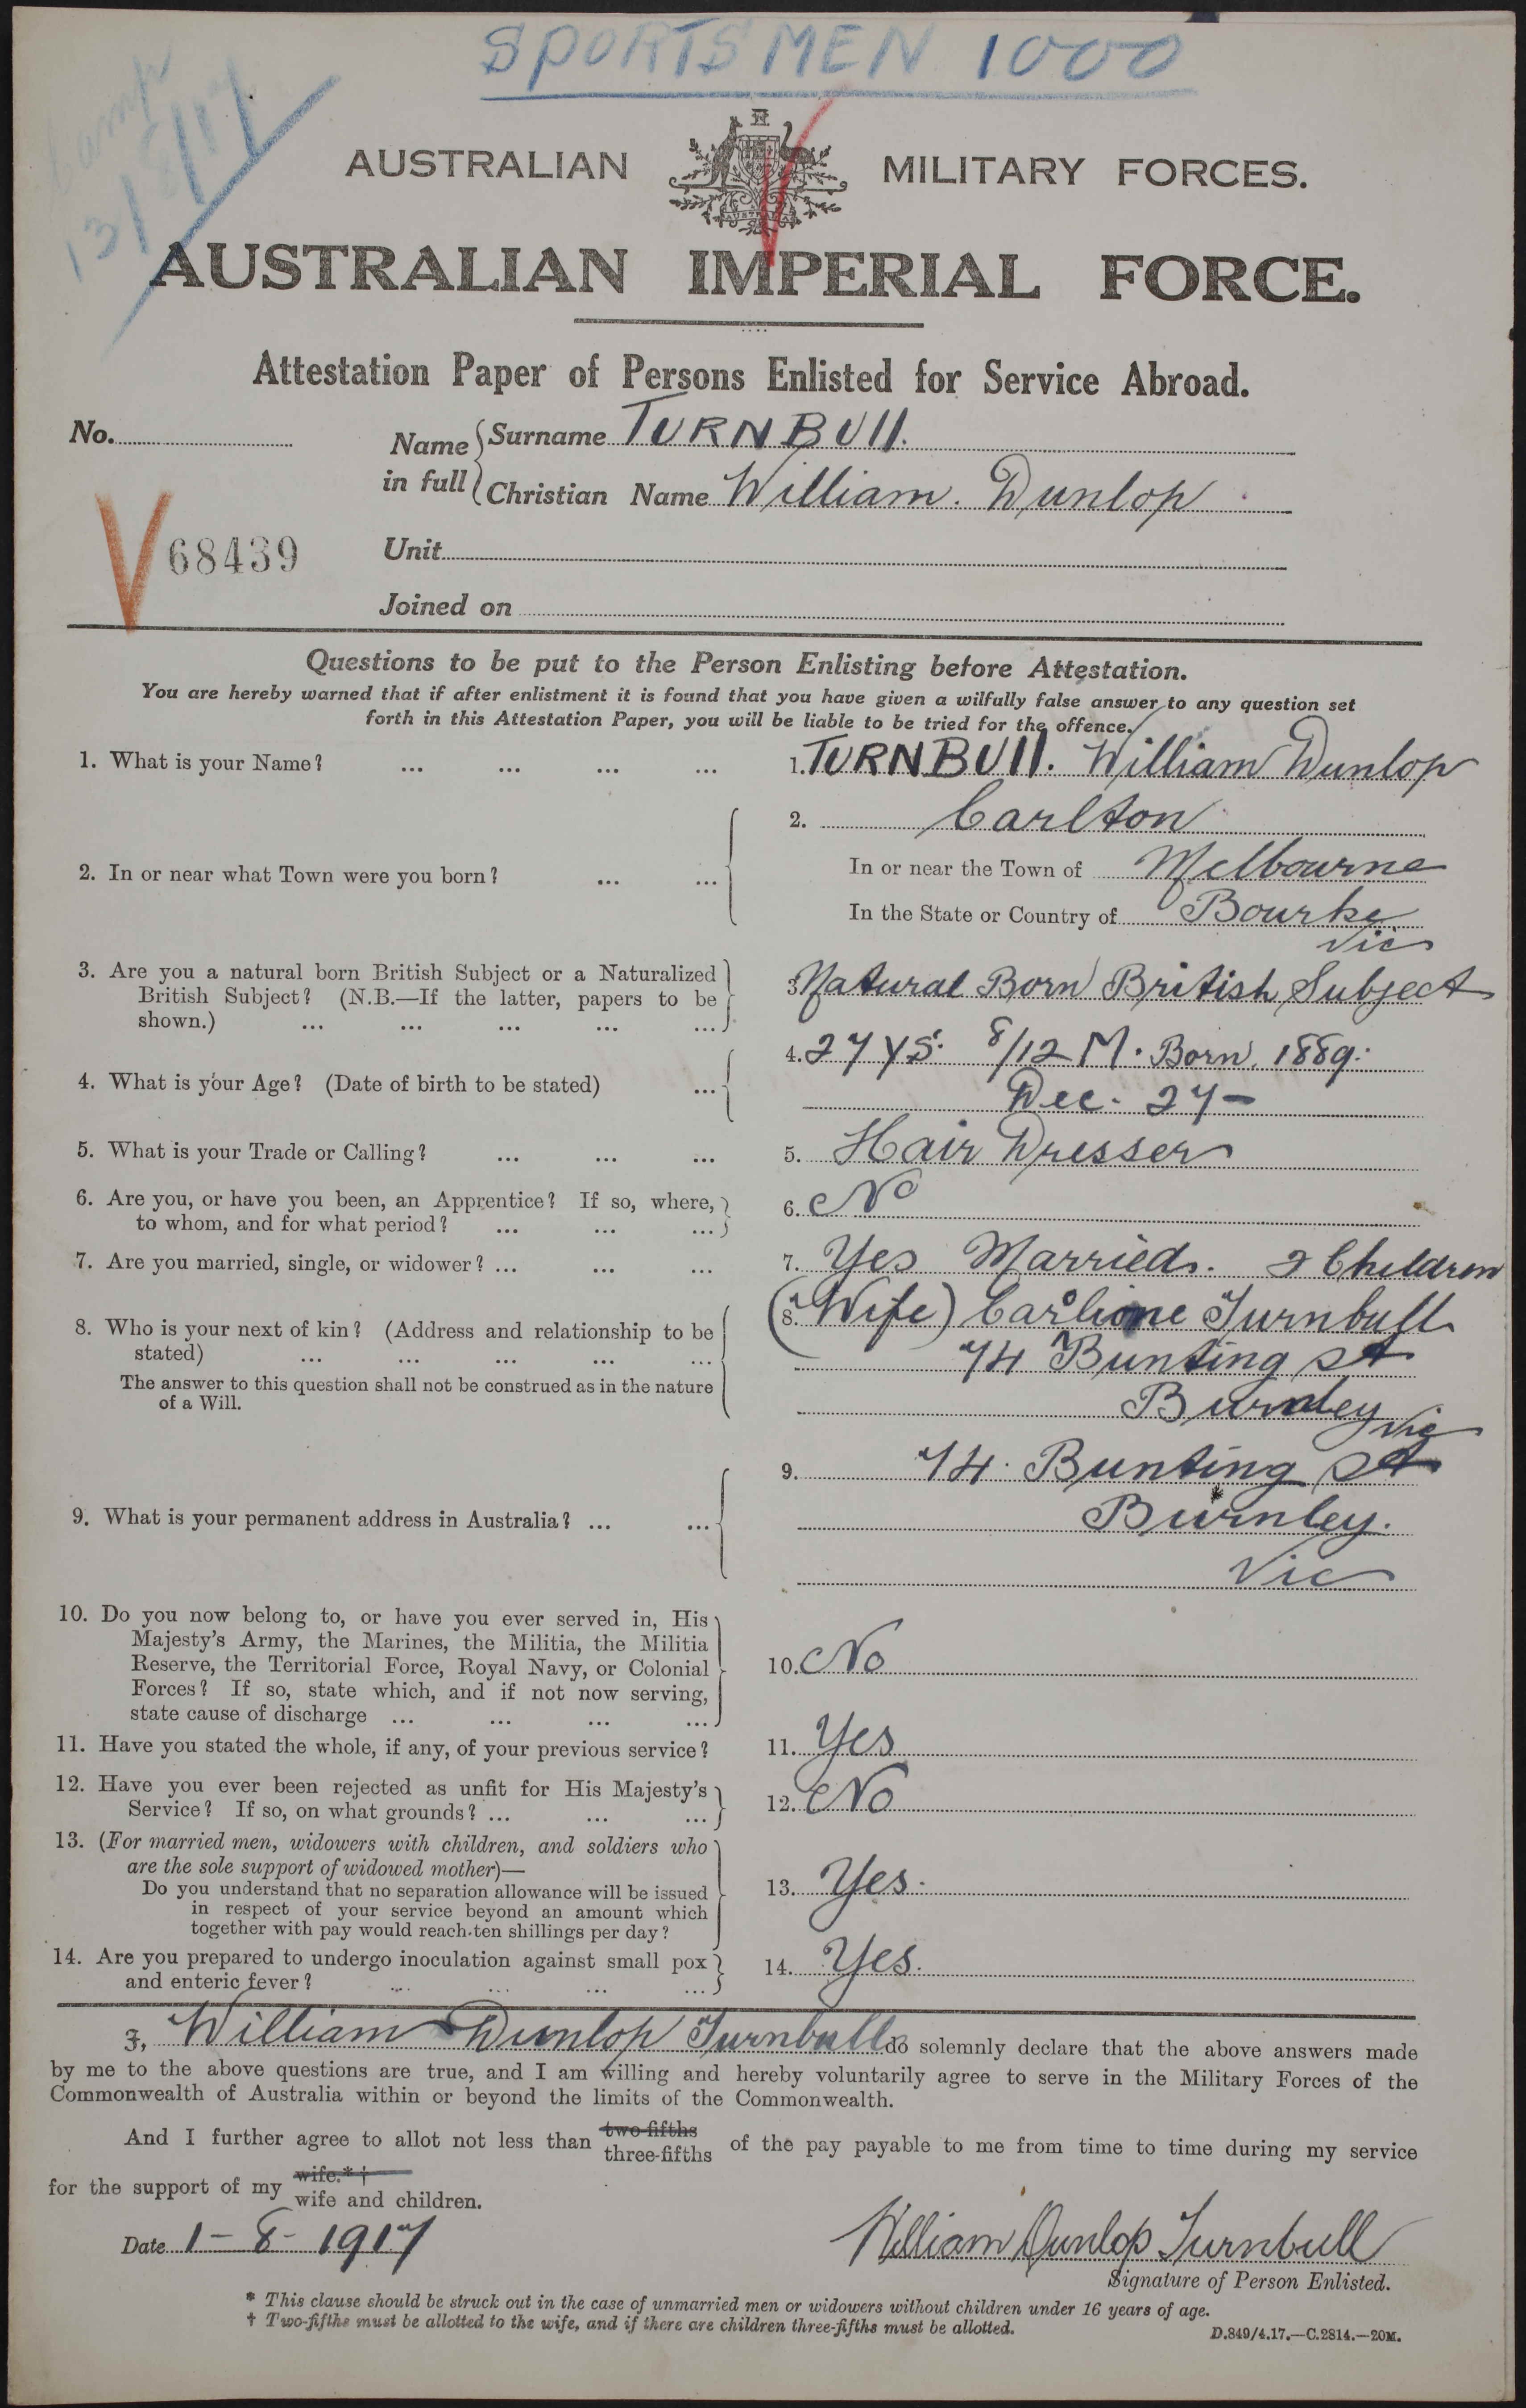 SPORTSMEN 1000
Camp
13/8/17
AUSTRALIAN MILITARY FORCES.
AUSTRALIA
AUSTRALIAN IMPERIAL FORCE.
Attestation Paper of Persons Enlisted for Service Abroad.
No. Name in full Surname TURNBUll.
Christian Name William. Dunlop
68439
Unit
Joined on
Questions to be put to the Person Enlisting before Attestation.
You are hereby warned that if after enlistment it is found that you have given a wilfully false answer to any question set
forth in this Attestation Paper, you will be liable to be tried for the offence.
1. What is your Name? ... ... ... ... 1. TURNBUll. William Dunlop
2. In or near what Town were you born? ... ... 2. Carlton
In or near the Town of Melbourne
In the State or Country of Bourke
Vic
3. Are you a natural born British Subject or a Naturalized
British Subject? (N.B.—If the latter, papers to be
shown.) ... ... ... ... ... 3. Natural Born British Subject
4. What is your Age? (Date of birth to be stated) ... 4. 27 YS. 8/12 M. Born. 1889.
Dec. 27—
5. What is your Trade or Calling? ... ... ... 5. Hair Dresser
6. Are you, or have you been, an Apprentice? If so, where,
to whom, and for what period? ... ... ... 6. No
7. Are you married, single, or widower? ... ... ... 7. Yes Married. 2 Children
8. Who is your next of kin? (Address and relationship to be
stated) ... ... ... ... ...
The answer to this question shall not be construed as in the nature
of a Will.
8. (Wife) Turnbull
74 Bunting St
Burnley Vic
9. What is your permanent address in Australia? ... ... 9. 74. Bunting St
Burnley.
Vic
10. Do you now belong to, or have you ever served in, His
Majesty's Army, the Marines, the Militia, the Militia
Reserve, the Territorial Force, Royal Navy, or Colonial
Forces? If so, state which, and if not now serving,
state cause of discharge ... ... ... ... 10. No
11. Have you stated the whole, if any, of your previous service? 11. Yes
12. Have you ever been rejected as unfit for His Majesty's
Service? If so, on what grounds? ... ... ... 12. No
13. (For married men, widowers with children, and soldiers who
are the sole support of widowed mother)—
Do you understand that no separation allowance will be issued
in respect of your service beyond an amount which
together with pay would reach ten shillings per day? 13. Yes.
14. Are you prepared to undergo inoculation against small pox
and enteric fever? ... ... ... ... 14. Yes.
I, William Dunlop Turnbull do solemnly declare that the above answers made
by me to the above questions are true, and I am willing and hereby voluntarily agree to serve in the Military Forces of the
Commonwealth of Australia within or beyond the limits of the Commonwealth.
And I further agree to allot not less than two-fifths three-fifths of the pay payable to me from time to time during my service
for the support of my wife.*† wife and children.
Date 1-8-1917
William Dunlop Turnbull
Signature of Person Enlisted.
* This clause should be struck out in the case of unmarried men or widowers without children under 16 years of age.
† Two-fifths must be allotted to the wife, and if there are children three-fifths must be allotted.
D.849/4.17.—C.2814.—20M.